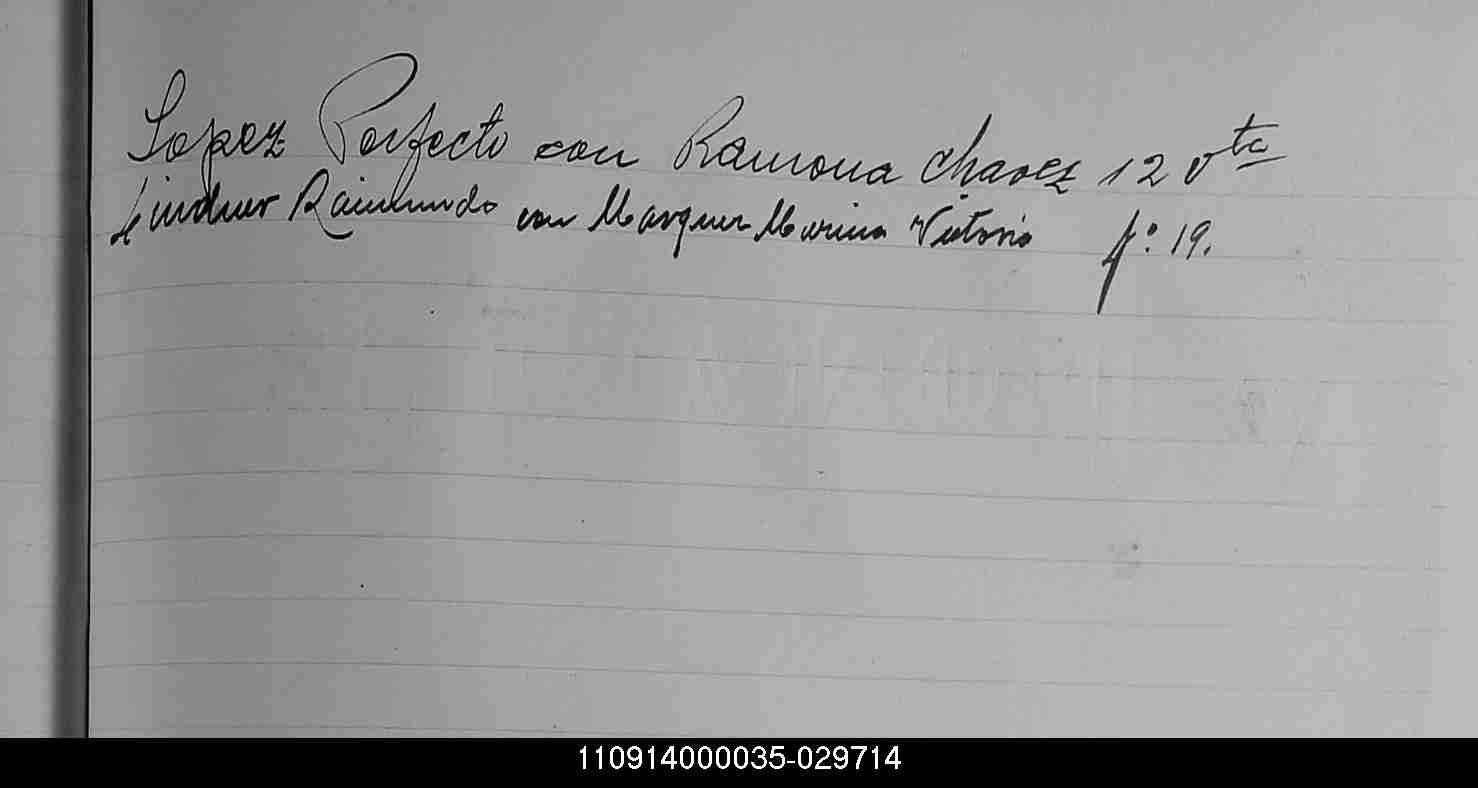 Lopez Perfecto con Ramona Chavez 12 vta
Lindner Raimundo con Marquez Marina Victoria fº 19.
110914000035-029714